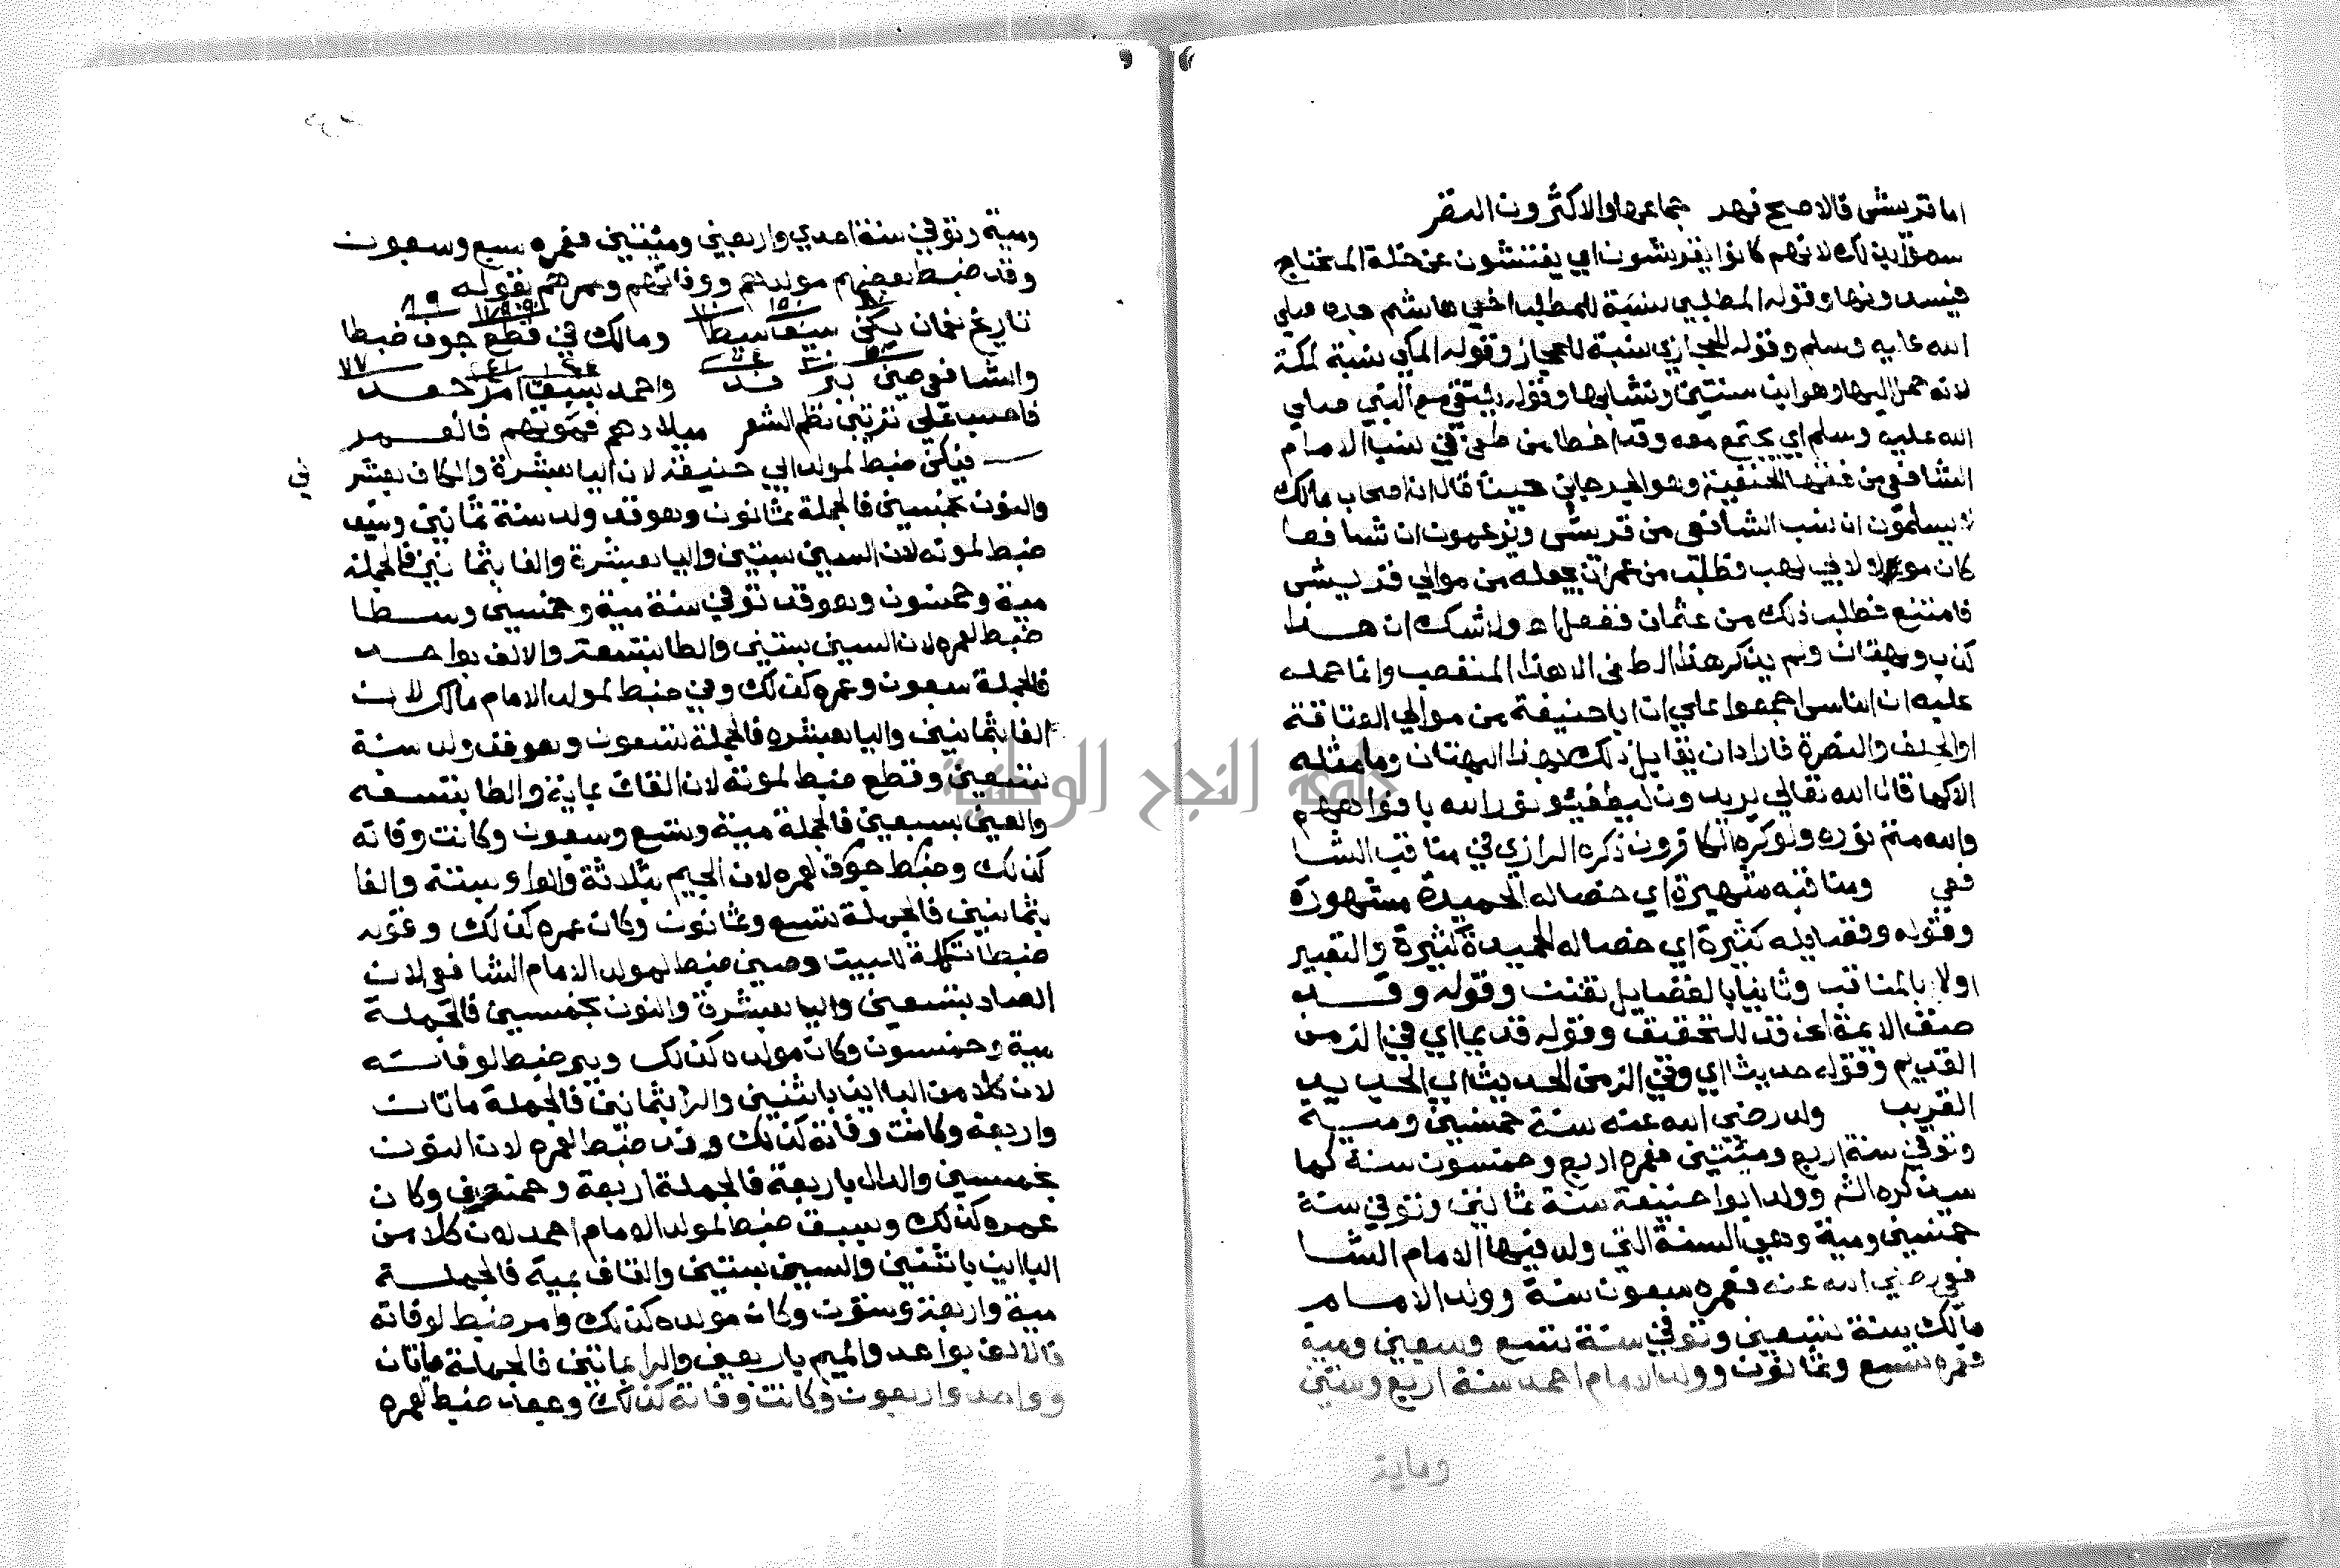 اما قريش فالاصح فهر جماعها والاكثرون النضر
سموا بذلك لانهم كانوا يقرشون اي يفتشون عن خلة المحتاج
فيسدونها وقوله المطلبي نسبة للمطلب اخي هاشم جده صلي
الله عليه وسلم وقوله الحجازي نسبة للحجاز وقوله المكي نسبة لمكة
لانه حمل اليها وهو ابن سنتين ونشا بها وقوله يلتقي مع النبي صلي
الله عليه وسلم اي يجتمع معه وقد اخطا من طعن في نسب الامام
الشافعي من فقها الحنفية وهو الجرجاني حيث قال ان اصحاب مالك
لا يسلمون ان نسب الشافعي من قريش ويزعمون ان شافعا
كان مولا لابي لهب فطلب من عمر ان يجعله من موالي قريش
فامتنع فطلب ذلك من عثمان ففعل اه ولا شك ان هذا
كذب وبهتان ولم يذكر هذا الطعن الا هذا المتعصب وانما حمله
عليه ان الناس اجمعوا علي ان ابا حنيفة من موالي العتاقة
او الحلف والنصرة فاراد ان يقابل ذلك بهذا البهتان وما مثله
الا كما قال الله تعالي يريدون ليطفئوا نور الله بافواههم
والله متم نوره ولو كره الكافرون ذكره الرازي في مناقب الشا
فعي ومناقبه شهيرة اي خصاله الحميدة مشهورة
وقوله وفضايله كثيرة اي خصاله الحميدة كثيرة والتعبير
اولا بالمناقب وثانيا بالفضايل تفنن وقوله وقد
صنف الايمة الخ قد للتحقيق وقوله قديما اي في الزمن
القديم وقوله حديثا اي وفي الزمن الحديث اي الجديد
القريب ولد رضي الله عنه سنة خمسين ومية
وتوفي سنة اربع وميتين فعمره اربع وخمسون سنة كما
سيذكره الش وولد ابوا حنيفة سنة ثمانين وتوفي سنة
خمسين ومية وهي السنة التي ولد فيها الامام الشا
فعي رضي الله عنه فعمره سبعون سنة وولد الامام
مالك سنة تسعين وتوفي سنة تسع وسبعين ومية
فعمره تسع وثمانون وولد الامام احمد سنة اربع وستين
وماية
ومية وتوفي سنة احدي واربعين وميتين فعمره سبع وسبعون
وقد ضبط بعضهم مولدهم ووفاتهم وعمرهم بقوله
تاريخ نعمان يكن سيف سطا ومالك في قطع جوف ضبطا
والشافعي صين ببر ند واحمد بسبق امر جعد
فاحسب علي ترتيب نظم الشعر ميلادهم فموتهم فالعمر
فيكن ضبط لمولد ابي حنيفة لان اليا بعشرة والكاف بعشر
في
والنون بخمسين فالجملة ثمانون وهو قد ولد سنة ثمانين وسيف
ضبط لموته لان السين بستين واليا بعشرة والفا بثمانين فالجملة
مية وخمسون وهو قد توفي سنة مية وخمسين وسطا
ضبط لعمره لان السين بستين والطا بتسعة والالف بواحد
فالجملة سبعون وعمره كذلك وفي ضبط لمولد الامام مالك لان
الفا بثمانين واليا بعشره فالجملة تسعون وهو قد ولد سنة
تسعين وقطع ضبط لموته لان القاف بماية والطا بتسعه
والعين بسبعين فالجملة مية وتسع وسبعون وكانت وفاته
كذلك وضبط جوف لعمره لان الجيم بثلاثة والواو بستة والفا
بثمانين فالجملة تسع وثمانون وكان عمره كذلك وقوله
ضبطا تكملة للبيت وصين ضبط لمولد الامام الشافعي لان
الصاد بتسعين واليا بعشرة والنون بخمسين فالجملة
مية وخمسون وكان مولده كذلك وببر ضبط لوفاته
لان كلا من الباين باثنين والرا بمايتين فالجملة ماتان
واربعة وكانت وفاته كذلك وند ضبط لعمره لان النون
بخمسين والدال باربعة فالجملة اربعة وخمسون وكان
عمره كذلك وبسبق ضبط لمولد الامام احمد لان كلا من
الباين باثنين والسين بستين والقاف بمية فالجملة
مية واربعة وستون وكان مولده كذلك وامر ضبط لوفاته
فالالف بواحد والميم باربعين والرا بمايتين فالجملة ماتان
وواحد واربعون وكانت وفاته كذلك وجعد ضبط لعمره
جامعة النجاح الوطنية